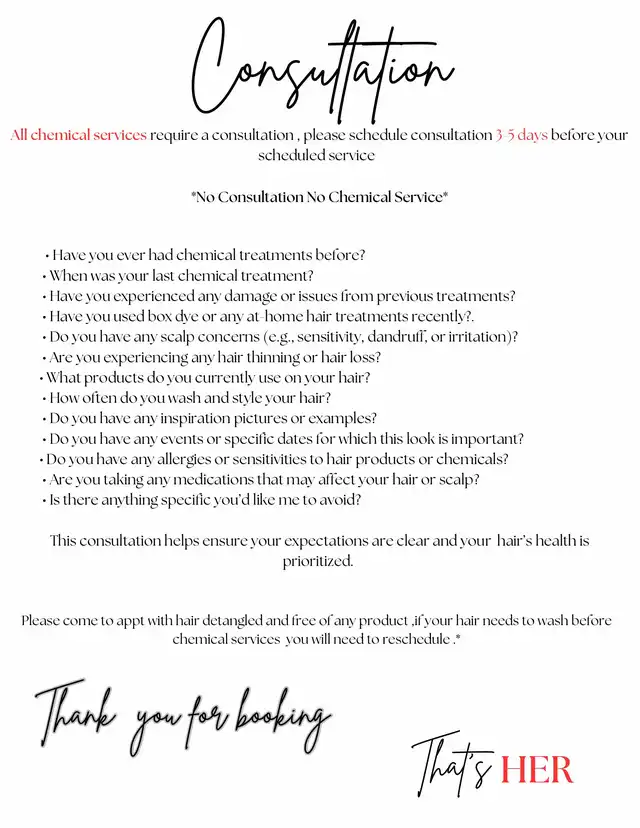 Consultation
All chemical services require a consultation , please schedule consultation 3-5 days before your
scheduled service
*No Consultation No Chemical Service*
• Have you ever had chemical treatments before?
• When was your last chemical treatment?
• Have you experienced any damage or issues from previous treatments?
• Have you used box dye or any at-home hair treatments recently?.
• Do you have any scalp concerns (e.g., sensitivity, dandruff, or irritation)?
• Are you experiencing any hair thinning or hair loss?
• What products do you currently use on your hair?
• How often do you wash and style your hair?
• Do you have any inspiration pictures or examples?
• Do you have any events or specific dates for which this look is important?
• Do you have any allergies or sensitivities to hair products or chemicals?
• Are you taking any medications that may affect your hair or scalp?
• Is there anything specific you'd like me to avoid?
This consultation helps ensure your expectations are clear and your hair's health is
prioritized.
Please come to appt with hair detangled and free of any product ,if your hair needs to wash before
chemical services you will need to reschedule .*
Thank you for booking
That's HER